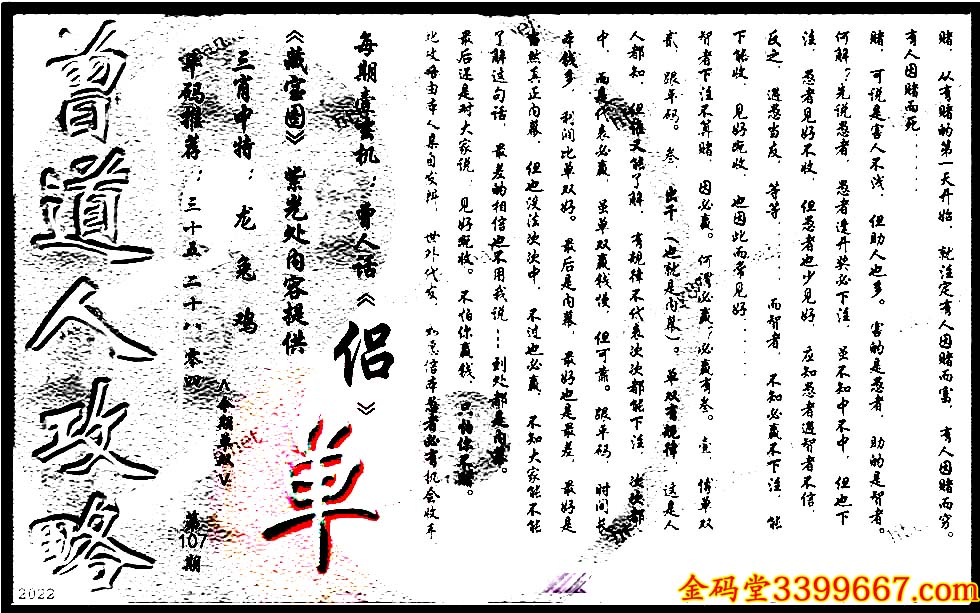 赌 从有赌的第一天开始 就注定有人因赌而富 有人因赌而穷。
有人因赌而死.....
赌 可说是害人不浅 但助人也多。害的是愚者 助的是智者。
何解?先说愚者 愚者逢开奖必下注 虽不知中不中 但也下
注 愚者见好不收 但愚者也少见好 应知愚者遇智者不信
反之 遇愚当友 等等..... 而智者 不知必赢不下注 能
下能收 见好就收 也因此而常见好.....
智者下注不算赌 因必赢。何谓必赢?必赢有叁。壹 傅单双
贰 跟单码。叁 出千(也就是内幕)。单双有规律 这是人
人都知 但谁又能了解 有规律不代表次次都能下注 次次都
中 而是代表必赢 虽单双赢钱慢 但可靠。跟单码 时间长
本钱多 利润比单双好。最后是内幕 最好也是最差 最好是
当然真正内幕 但也没法次次中 不过也必赢 不知大家能不能
了解这句话 最差的相信也不用我说...到处都是内幕。
最后还是对大家说 见好就收。不怕你赢钱、只怕你不赌。
此攻略由本人亲自发 世外代友 如 信本 者必有机会收车
每期壹玄机:曾人话《侣》
《藏宝图》紫光处内容提供
三肖中特: 龙 兔 鸡
单码推荐: 三十五 二十八 零四
<今期单双>
单
第107期
曾道人攻略
2022
金码堂3399667.com